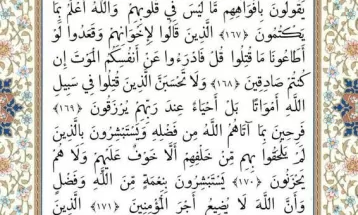 يَقُولُونَ بِأَفْوَاهِهِم مَّا لَيْسَ فِي قُلُوبِهِمْ وَاللَّهُ أَعْلَمُ بِمَا
يَكْتُمُونَ ﴿١٦٧﴾ الَّذِينَ قَالُوا لِإِخْوَانِهِمْ وَقَعَدُوا لَوْ
أَطَاعُونَا مَا قُتِلُوا قُلْ فَادْرَءُوا عَنْ أَنفُسِكُمُ الْمَوْتَ إِن
كُنتُمْ صَادِقِينَ ﴿١٦٨﴾ وَلَا تَحْسَبَنَّ الَّذِينَ قُتِلُوا فِي سَبِيلِ
اللَّهِ أَمْوَاتًا بَلْ أَحْيَاءٌ عِندَ رَبِّهِمْ يُرْزَقُونَ ﴿١٦٩﴾
فَرِحِينَ بِمَا آتَاهُمُ اللَّهُ مِن فَضْلِهِ وَيَسْتَبْشِرُونَ بِالَّذِينَ
لَمْ يَلْحَقُوا بِهِم مِّنْ خَلْفِهِمْ أَلَّا خَوْفٌ عَلَيْهِمْ وَلَا هُمْ
يَحْزَنُونَ ﴿١٧٠﴾ يَسْتَبْشِرُونَ بِنِعْمَةٍ مِّنَ اللَّهِ وَفَضْلٍ
وَأَنَّ اللَّهَ لَا يُضِيعُ أَجْرَ الْمُؤْمِنِينَ ﴿١٧١﴾ الَّذِينَ